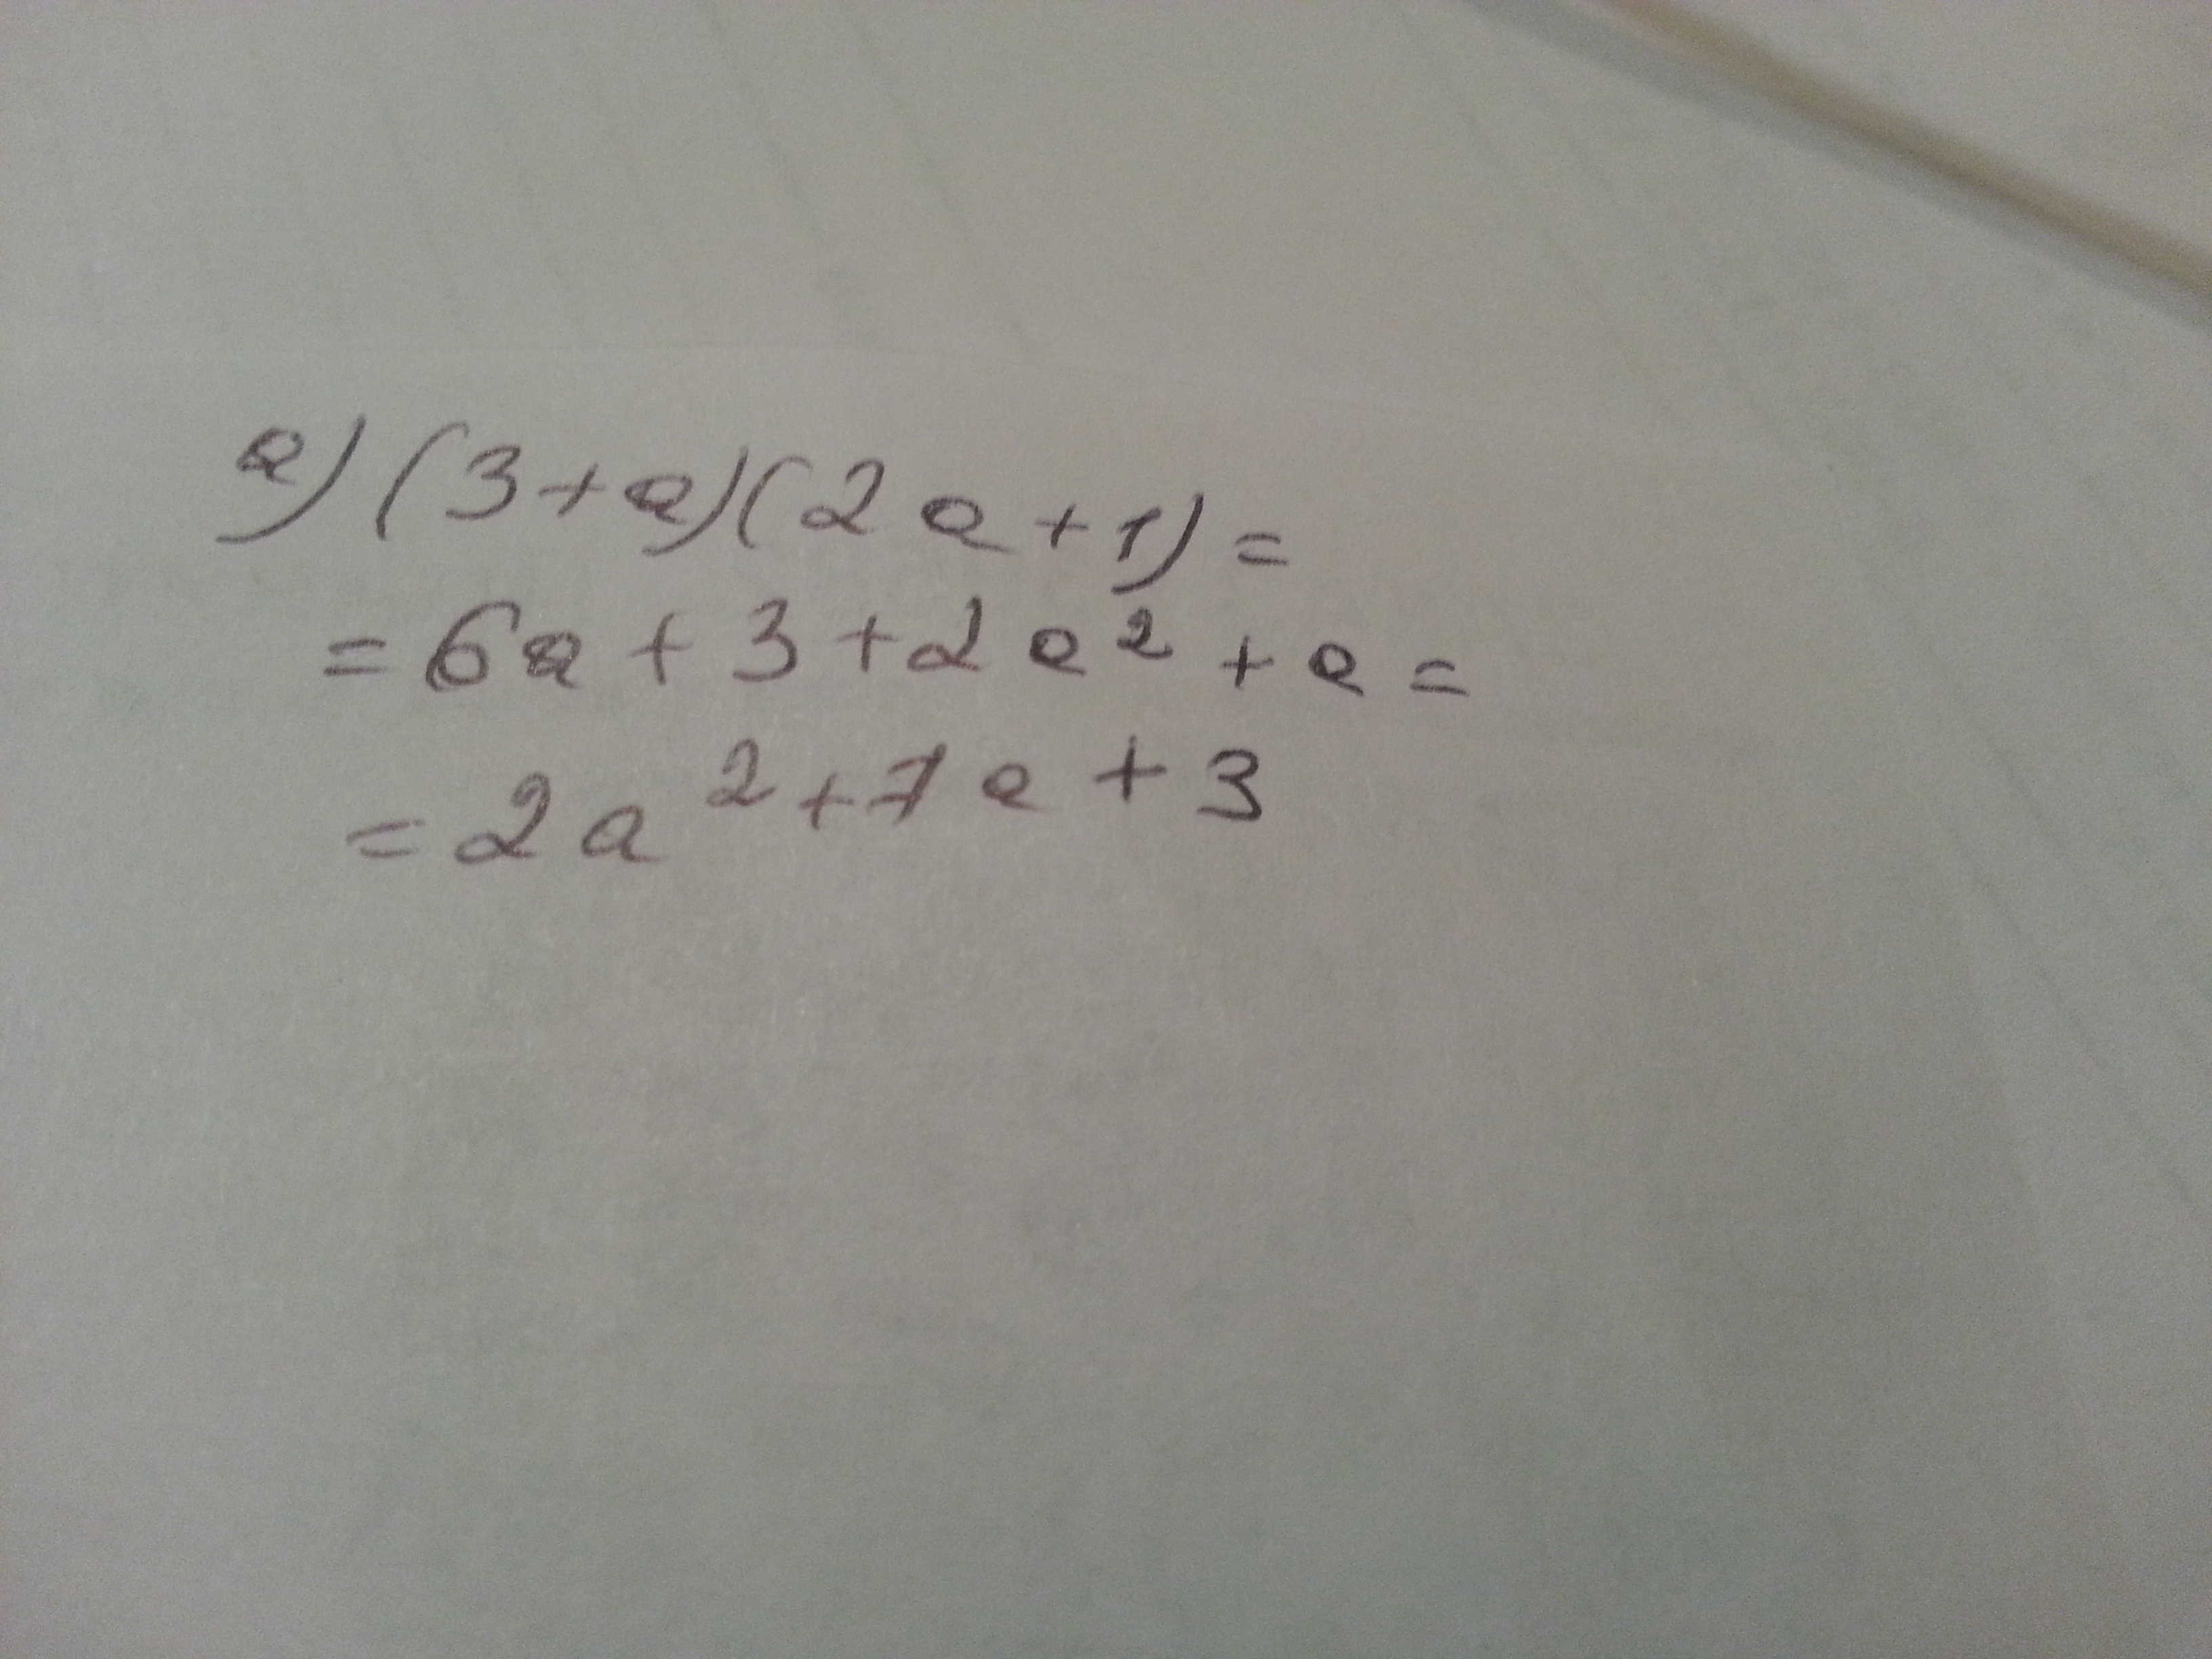 a) (3+a)(2a+1)=
=6a+3+2a²+a=
=2a²+7a+3